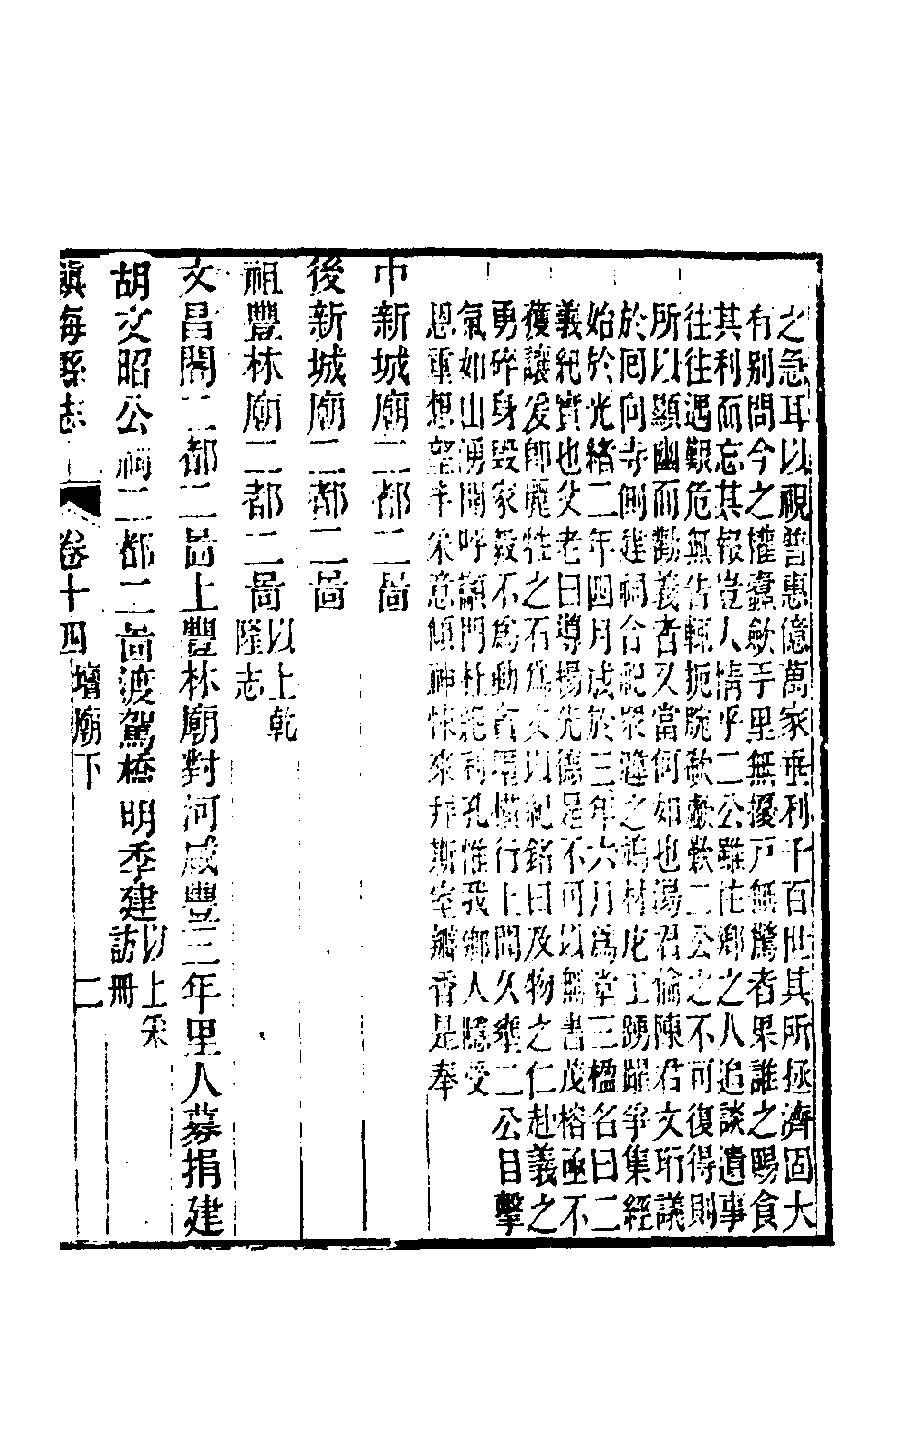 之急耳以視普惠億萬家垂利千百世其所拯濟固大
有別問今之權蠹歛手里無擾戶無驚者果誰之賜食
其利而忘其報豈人情乎二公雖往鄉之人追談遺事
往往遇艱危無告輒扼腕欷歔歎二公之不可復得則
所以顯幽而勸義者又當何如也湯君倫陳君文珩議
於回向寺側建祠合祀眾韙之鳩材庀工踴躍爭集經
始於光緒二年四月成於三年六月為堂三楹名曰二
義紀實也父老曰導揚先傷是不可以無書茂榕亟不
獲讓爰卽麗牲之石為文以紀銘曰及物之仁赴義之
勇碎身毀家毅不為動蠹胥橫行上聞久壅二公目擊
氣如山湧閽呼讀門杜絕利孔惟我鄉人隱受
恩重想望丰采意傾神悚來拜斯室瓣香是奉
中新城廟二都二啚
後新城廟二都二啚
祖豐林廟二都二啚以上乾隆志
文昌閣二都二啚上豐林廟對河咸豐三年里人募捐建
胡文昭公祠二都二啚渡駕橋明季建以上采訪冊
鎮海縣志 卷十四 壇廟下 二